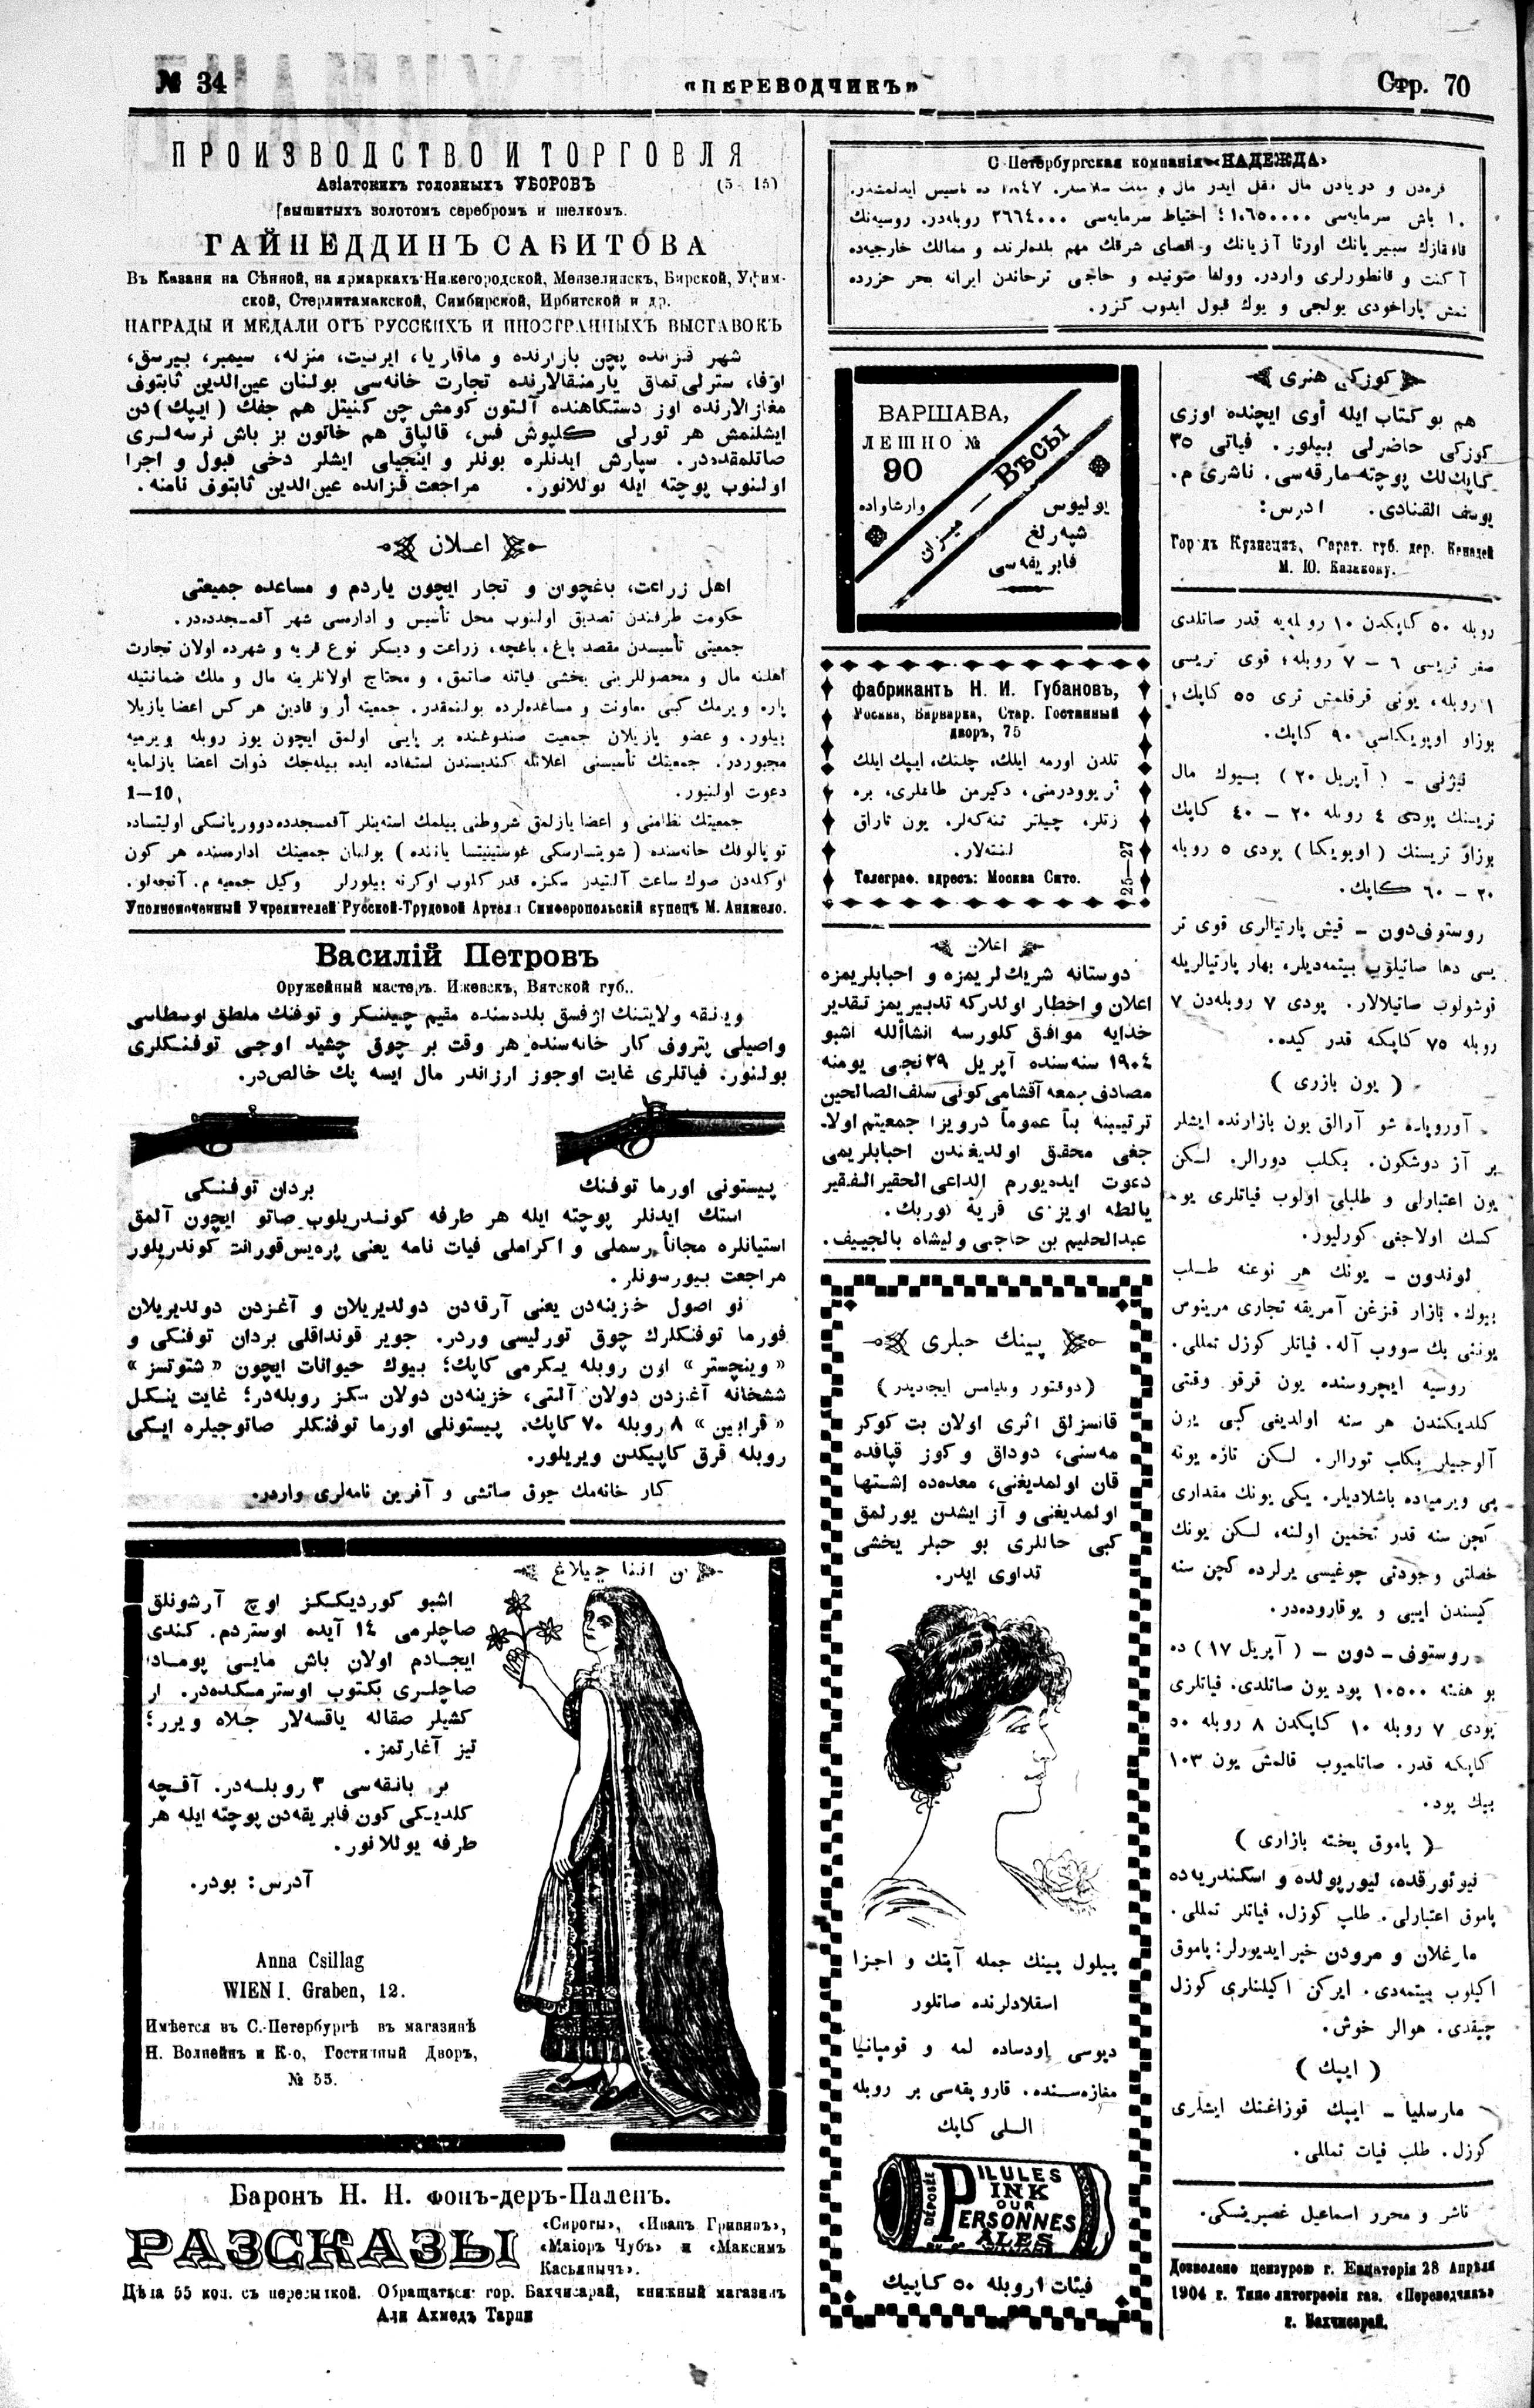 № 34
«ПЕРЕВОДЧИКЪ»
Стр. 70
ПРОИЗВОДСТВО И ТОРГОВЛЯ
Азіатскихъ головныхъ УБОРОВЪ (5-15)
вышитыхъ золотомъ серебромъ и шелкомъ.
ГАЙНЕДДИНЪ САБИТОВА
Въ Казани на Сѣнной, на ярмаркахъ Нижегородской, Мензелинскъ, Бирской, Уфим-
ской, Стерлитамакской, Симбирской, Ирбитской и др.
НАГРАДЫ И МЕДАЛИ ОТЪ РУССКИХЪ И ИНОСТРАННЫХЪ ВЫСТАВОКЪ
شهر قزانده پچن بازارنده و ماقاریا، ایربیت، منزله، سیمبر، بیرسق،
اوفا، سترلی‌تماق یارمنقالارنده تجارت خانه‌سی بولنان عین‌الدین ثابتوف
مغازالارنده اوز دستکاهنده آلتون کومش چن کنیتل هم جفك (ایپك) دن
ایشلنمش هر تورلی كلپوش فس، قالپاق هم خاتون بز باش نرسه‌لری
صاتلمقده‌در. سپارش ایدنلره بونلر و اینجیلی ایشلر دخی قبول و اجرا
اولنوب پوچته ایله یوللانور. مراجعت قزانده عین‌الدین ثابتوف نامنه.
اعلان
اهل زراعت، باغچوان و تجار ایچون یاردم و مساعده جمعیتی
حکومت طرفندن تصدیق اولنوب محل تأسیس و اداره‌سی شهر آقمسجدده‌در.
جمعیتی تأسیسدن مقصد باغ، باغچه، زراعت و دیكر نوع قریه و شهرده اولان تجارت
اهلنه مال و محصوللرینی یخشی فیاتله صاتمق، و محتاج اولانلرینه مال و ملك ضمانتیله
پاره ویرمك كبی معاونت و مساعده‌لرده بولنمقدر. جمعیته أر و قادین هر کس اعضا یازیلا
بیلور. و عضو یازیلان جمعیت صندوغنده بر پایی اولمق ایچون یوز روبله ویرمیه
مجبوردر. جمعیتك تأسیسنی اعلانله كندیسندن استفاده ایده بیله‌جك ذوات اعضا یازلمایه
دعوت اولنیور. 1—10
جمعیتك نظامنی و اعضا یازلمق شروطنی بیلمك استه‌ینلر آقمسجدده دووریانسکی اولیتساده
توپالوفك خانه‌سنده (شویتسارسکی غوستینیتسا یاننده) بولنان جمعیتك اداره‌سنده هر كون
اوكله‌دن صوك ساعت آلتیدن سكزه قدر كلوب اوكرنه بیلورلر وكیل جمعیه م. آنجه‌لو.
Уполномоченный Учредителей Русской-Трудовой Артели Симферопольскій купецъ М. Анджело.
Василій Петровъ
Оружейный мастеръ. Ижевскъ, Вятской губ..
ویاتقه ولایتنك اژفسق بلده‌سنده مقیم چیلنكر و توفنك ملطق اوسطاسی
واصیلی پتروف کار خانه‌سنده هر وقت بر چوق چشید اوجی توفنكلری
بولنور. فیاتلری غایت اوجوز ارزاندر مال ایسه پك خالص‌در.
پیستونی اورما توفنك
بردان توفنكی
استك ایدنلر پوچته ایله هر طرفه كوندریلوب صاتو ایچون آلمق
استیانلره مجاناً رسملی و اكراملی فیات نامه یعنی پره‌یس‌قورانت كوندریلور
مراجعت بیورسونلر.
نو اصول خزینه‌دن یعنی آرقه‌دن دولدیریلان و آغزدن دولدیریلان
فورما توفنكلرك چوق تورلیسی وردر. جویر قونداقلی بردان توفنكی و
«وینچستر» اون روبله یكرمی كاپك؛ بیوك حیوانات ایچون «شتوتسز»
ششخانه آغزدن دولان آلتی، خزینه‌دن دولان سكز روبله‌در؛ غایت ینكل
«قرابین» ٨ روبله ٧٠ كاپك. پیستونلی اورما توفنكلر صاتوجیلره ایكی
روبله قرق كاپیكدن ویریلور.
كار خانه‌مك چوق صاتشی و آفرین نامه‌لری واردر.
بن اننا چیلاغ
اشبو كوردیككز اوچ آرشونلق
صاچلرمی ١٤ آیده اوستردم. كندی
ایجادم اولان باش مایی پومادا
صاچلری بكتوب اوسترمكده‌در. ار
كشیلر صقاله یاقسه‌لار جلاه ویرر؛
تیز آغارتمز.
بر بانقه‌سی ٣ روبله‌در. آقچه
كلدیكی كون فابریقه‌دن پوچته ایله هر
طرفه یوللانور.
آدرس: بودر.
Anna Csillag
WIEN I. Graben, 12.
Имѣется въ С.-Петербургѣ въ магазинѣ
Н. Волпейнъ и К-о, Гостинный Дворъ,
№ 55.
Баронъ Н. Н. фонъ-деръ-Паленъ.
РАЗСКАЗЫ
«Сироты», «Иванъ Гривинъ»,
«Маіоръ Чубъ» и «Максимъ
Касьянычъ».
Цѣна 55 коп. съ пересылкой. Обращаться: гор. Бахчисарай, книжный магазинъ
Али Ахмедъ Тарпи
С Петербургская компанія «НАДЕЖДА»
قره‌دن و دریادن مال نقل ایدر
باش سرمایه‌سی ١٠٦٥٠٠٠٠؛ احتیاط سرمایه‌سی ٢٦٦٤٠٠٠ روبله‌در. روسیه‌نك
قافقازك سبیریانك اورتا آزیانك و اقصای شرقك مهم بلده‌لرنده و ممالك خارجیه‌ده
آكنت و قانطورلری واردر. وولغا صوئیده و حاجی ترخاندن ایرانه بحر خزرده
نمش پاراخودی یولجی و یوك قبول ایدوب كزر.
ВАРШАВА,
ЛЕШНО №
90
وارشاواده
ВѢСЫ — میزان
یولیوس
شپه‌رلغ
فابریقه‌سی
фабрикантъ Н. И. Губановъ,
Москва, Варварка, Стар. Гостинный
дворъ, 75
تلدن اورمه ایلك، چلنك، ایپك ایلك
تریوودرمنی، دكیرمن طاغلری، بره
زتلر، چیلتر تنه‌كه‌لر، یون تاراق
لنته‌لار.
Телеграф. адресъ: Москва Сито.
25—27
اعلان
دوستانه شریك‌لریمزه و احبابلریمزه
اعلان و اخطار اولدركه تدبیریمز تقدیر
خدایه موافق كلورسه انشاألله اشبو
١٩٠٤ سنه‌سنده آپریل ٢٩نجی یومنه
مصادف جمعه آقشامی كونی سلف‌الصالحین
ترتیبنه بناً عموماً درویزا جمعیتم اولا
جغی محقق اولدیغندن احبابلریمی
دعوت ایده‌یورم الداعی الحقیر الفقیر
یالطه اویزدی قریهٔ اوربك.
عبدالحلیم بن حاجی ولیشاه بالجییف.
پینك حبلری
(دوقتور ویلیامس ایجادیدر)
قانسزلق اثری اولان بت كوكر
مه‌سنی، دوداق وكوز قپاقده
قان اولمدیغنی، معده‌ده إشتها
اولمدیغنی و آز ایشدن یورلمق
كبی حاللری بو حبلر یخشی
تداوی ایدر.
پیلول پینك جمله آپتك و اجزا
اسقلادلرنده صاتلور
دپوسی اودساده لمه و قومپانیا
مغازه‌سنده. قاروبقه‌سی بر روبله
اللی كاپك
DÉPOSÉE
PILULES
PINK
POUR
PERSONNES
PALES
فیئات ١روبله ٥٠ كاپیك
كوزكی هنری
هم بو كتاب ایله أوی ایچنده اوزی
كوزكی حاضرلی بیلور. فیاتی ٣٥
كاپك‌لك پوچته مارقه‌سی. ناشری م.
یوسف القنادی. ادرس:
Городъ Кузнецкъ, Сарат. губ. дер. Канадей
М. Ю. Казакову.
روبله ٥٠ كاپكدن ١٠ روبله‌یه قدر صاتلدی
صغر تریسی ٦ — ٧ روبله؛ قوی تریسی
١روبله، یونی قرقلمش تری ٥٥ كاپك؛
بوزاو اوپویكاسی ٩٠ كاپك.
نیژنی — (آپریل ٢٠) بیوك مال
تریسنك پودی ٤ روبله ٢٠ — ٤٠ كاپك
بوزاو تریسنك (اوپویكا) پودی ٥ روبله
٢٠ — ٦٠ كاپك.
روستوف‌دون — قیش پارتیالری قوی تر
یسی دها صاتیلوب بیتمه‌دیلر، بهار پارتیالریله
قوشولوب صاتیلالار. پودی ٧ روبله‌دن ٧
روبله ٧٥ كاپكه قدر كیده.
(یون بازری)
آوروپاده شو آرالق یون بازارنده ایشلر
بر آز دوشكون. بكلب دورالر. لكن
یون اعتبارلی و طلبلی اولوب فیاتلری یو
كسك اولاجغی كورلیور.
لوندون — یونك هر نوعنه طلب
بیوك. بازار قزغن آمریقه تجاری مرینوس
یوننی پك سووب آله. فیاتلر كوزل تماللی.
روسیه ایچروسنده یون قرقو وقتی
كلدیكندن هر سنه اولدیغی كبی یون
آلوجیلر بكلب تورالر. لكن تازه یونه
پی ویرمیاده باشلادیلر. یكی یونك مقداری
كچن سنه قدر تخمین اولنه، لكن یونك
خصلتی وجودتی چوغیسی یرلرده كچن سنه
كیسندن اییی و یوقاروده‌در.
روستوف — دون — (آپریل ١٧) ده
بو هفته ١٠٥٠٠ پود یون صاتلدی. فیاتلری
پودی ٧ روبله ١٠ كاپكدن ٨ روبله ٥٠
كاپكه قدر. صاتلمیوب قالمش یون ١٠٣
بیك پود.
(پاموق پخته بازاری)
نیویورقده، لیورپولده و اسكندریه‌ده
پاموق اعتبارلی. طلب كوزل، فیاتلر تماللی.
مارغلان و مرودن خبر ایدیورلر: پاموق
اكیلوب بیتمه‌دی. ایركن اكیلنلری كوزل
چیقدی. هوالر خوش.
(ایپك)
مارسلیا — ایپك قوزاغنك ایشلری
كوزل. طلب فیات تماللی.
ناشر و محرر اسماعیل غصپرینسكی.
Дозволено цензурою г. Евпаторія 28 Апрѣля
1904 г. Типо литографія газ. «Переводчикъ»
г. Бахчисарай.